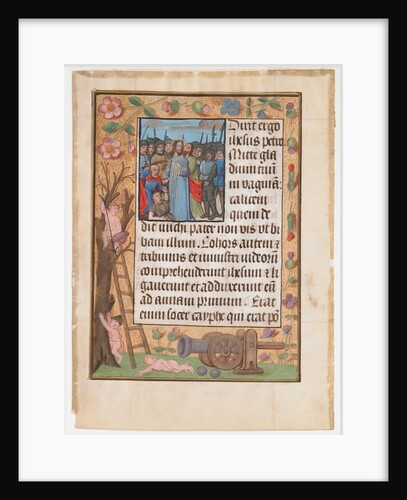 Dixit ergo
ihesus petro
Mitte gla
dium tuum
in vaginā:
calicem
quem de
dit michi pater non vis vt bi
bam illum. Cohors autem ⁊
tribunus et ministri iudeorum
comprehenderunt ihesum ⁊ li
gauerunt et adduxerunt eū
ad annam primum. Erat
enim socer cayphe qui erat pō